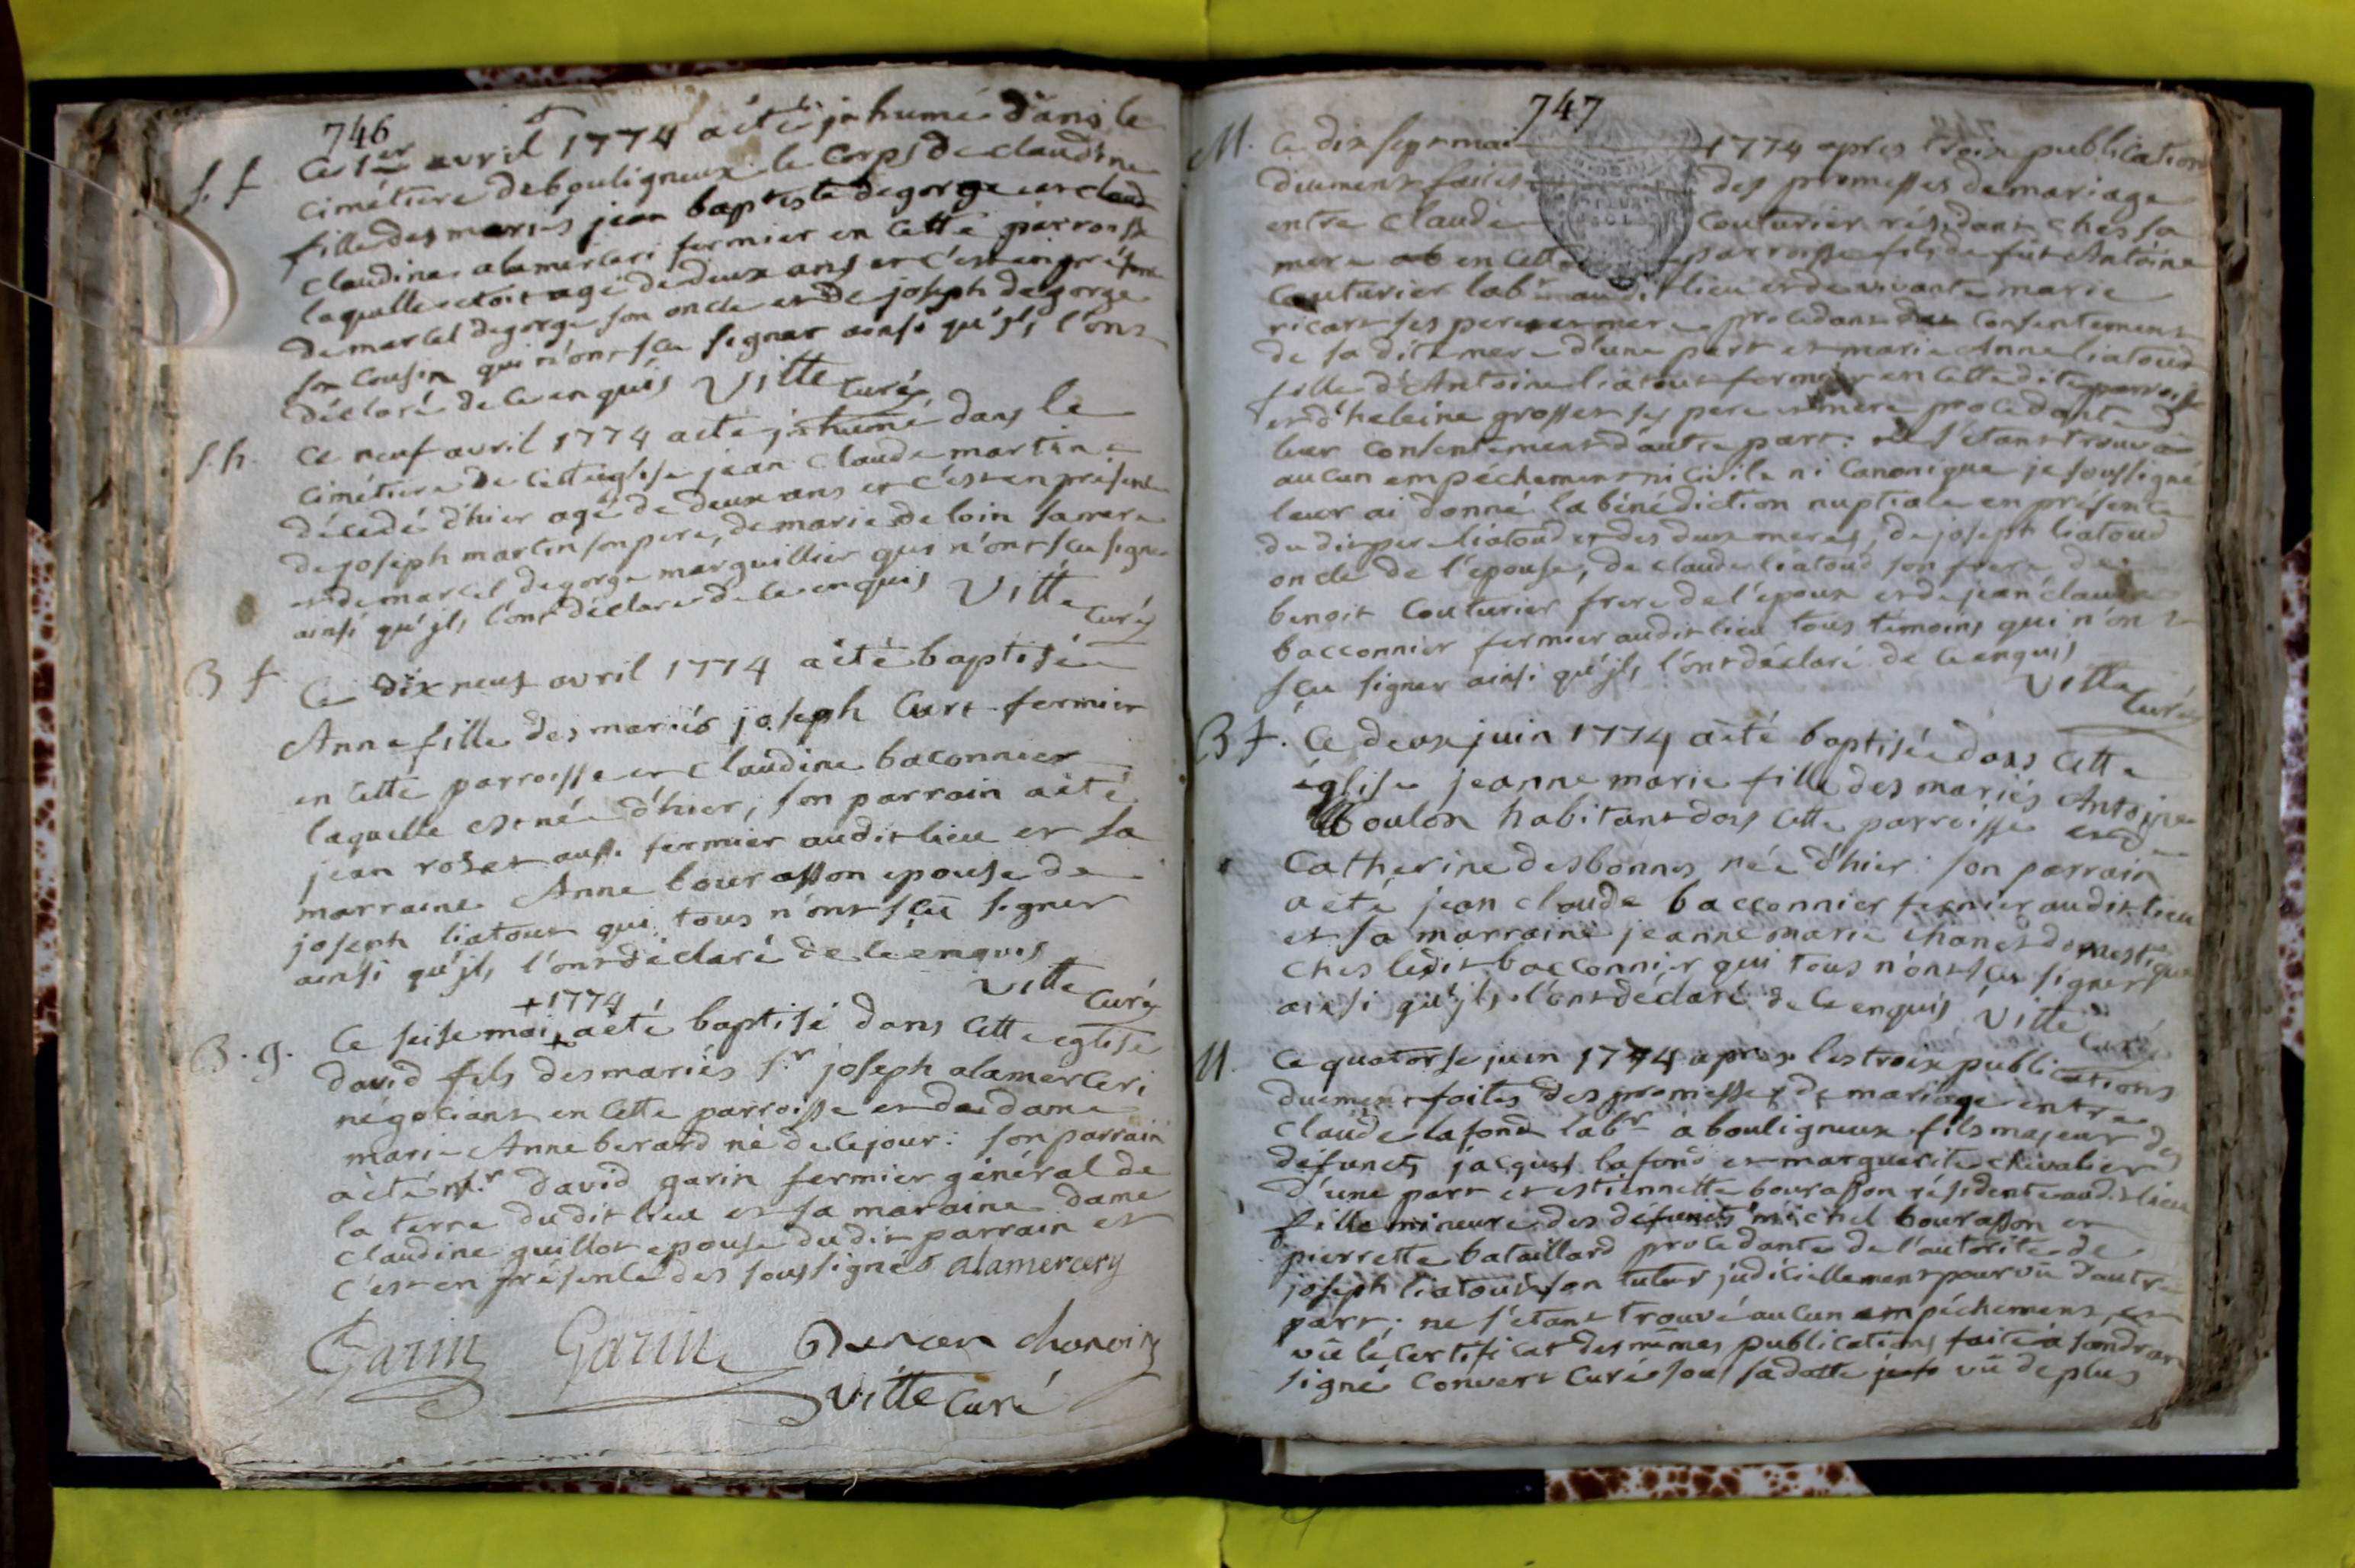 746
S. f ce 1er avril 1774 a été inhumé dans le
cimétiere de bouligneux le corps de claudine
fille des mariés jean baptiste degorge et claud
claudine alamerceri fermier en cette parroisse
laquelle etoit agé de deux ans et c'est en présence
de marcel degorge son oncle et de joseph degorge
son cousin qui n'ont sçu signer ainsi qu'jls l'ont
déclaré de ce enquis Vitte curé
S. h. ce neuf avril 1774 a été jnhumé dans le
cimétiere de cette église jean claude martin
décedé d'hier agé de deux ans et c'est en présence
de joseph martin son pere, de marie deloin sa mere
et de marcel degorge marguillier qui n'ont sçu signer
ainsi qu'jls l'ont déclaré de ce enquis Vitte
curé
B f. Ce dix neuf avril 1774 a été baptisée
Anne fille des mariés joseph Curt fermier
en cette parroisse et claudine baconnier
laquelle est née d'hier; son parrain a été
jean roset aussi fermier audit lieu et sa
marraine Anne bourasson epouse de
joseph liatout qui tous n'ont sçu signer
ainsi qu'jls l'ont déclaré de ce enquis
Vitte curé
+1774
B. g. Ce seise mai + a été baptisé dans cette eglise
david fils des mariés Sr joseph alamerceri
négociant en cette parroisse et de dame
marie Anne berard né de ce jour: son parrain
a été Sr david garin fermier général de
la terre dudit lieu et sa maraine dame
claudine guillot epouse dudit parrain et
c'est en présence des soussignés alamercery
Garin Garin chanoin
Vitte curé
747
M. Ce dix sept mai 1774 apres trois publications
duement faites des promesses de mariage
entre claude Couturier résidant ches sa
mere en cette parroisse fils de fut Antoine
Couturier labr audit lieu et de vivante marie
ricart ses pere et mere procedant du consentement
de sa dite mere d'une part et marie Anne liatoud
fille d'Antoine liatout fermier en cette dite parroisse
et d'heleine grosset ses pere et mere procedante d
leur consentement d'autre part: ne s'étant trouvé
aucun empéchement ni civile ni canonique je soussigné
leur ai donné la bénédiction nuptiale en présence
dudit pere liatoud et des deux meres, de joseph liatoud
oncle de l'epouse, de claude liatoud son frere de
benoit Couturier frere de l'époux et de jean claude
bacconnier fermier audit lieu tous témoins qui n'ont
sçu signer ainsi qu'jls l'ont déclaré de ce enquis
Vitte curé
B f. Ce deux juin 1774 a été baptisée dans cette
église jeanne marie fille des mariés Antoine
Boulon habitant dans cette parroisse et de
Catherine desbonnes née d'hier: son parrain
a été jean claude bacconnier fermier audit lieu
et sa marraine jeanne marie domestique
ches ledit bacconnier qui tous n'ont sçu signer
ainsi qu'jls l'ont déclaré de ce enquis Vitte
curé
M. Ce quatorse juin 1774 apres les trois publications
duement faites des promesses de mariage entre
claude lafond labr a bouligneux fils majeur des
défuncts jacques lafond et marguerite chevalier
d'une part et estiennette bourasson résidente audit lieu
fille mineure des défuncts michel bourasson et
pierrette bataillard procedante de l'autorité de
joseph liatout son tuteur judiciellement pourvû d'autre
part; ne s'étant trouvé aucun empéchement et
vû le certificat des mêmes publications faite a sandrans
signé Convert Curé sous sa datte vû de plus